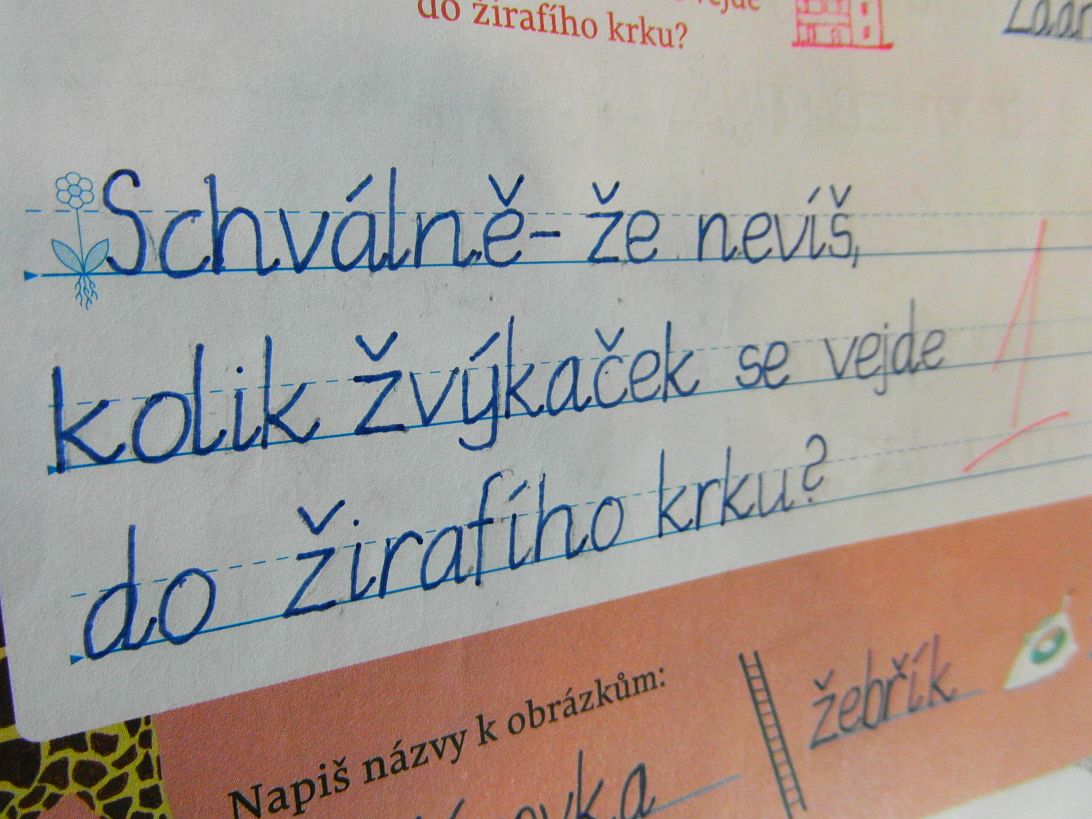 do žirafího krku?
Schválně- že nevíš,
kolik žvýkaček se vejde
do žirafího krku?
1
Napiš názvy k obrázkům:
žebřík